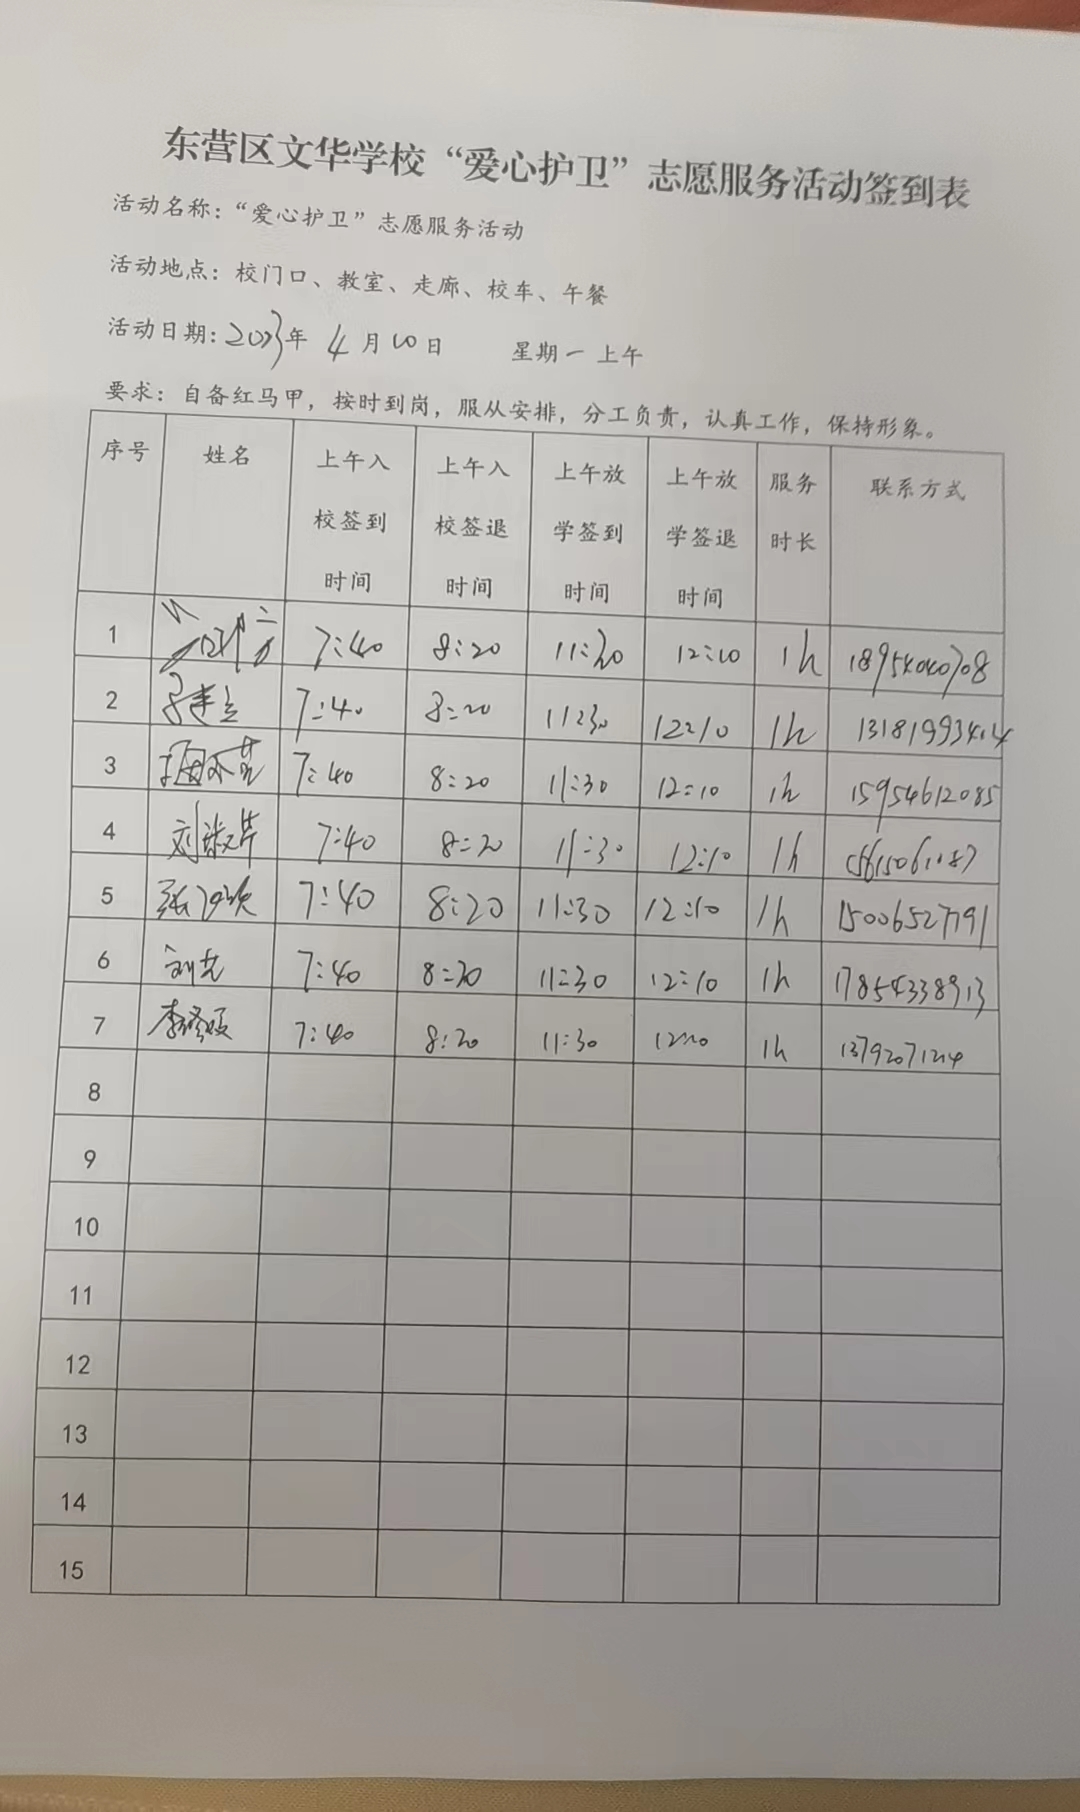 东营区文华学校“爱心护卫”志愿服务活动签到表
活动名称：“爱心护卫”志愿服务活动
活动地点：校门口、教室、走廊、校车、午餐
活动日期：2023年 4月10日 星期一 上午
要求：自备红马甲，按时到岗，服从安排，分工负责，认真工作，保持形象。
序号 姓名 上午入校签到时间 上午入校签退时间 上午放学签到时间 上午放学签退时间 服务时长 联系方式
1 7:40 8:20 11:30 12:10 1h
2 7:40 8:20 11:30 12:10 1h
3 7:40 8:20 11:30 12:10 1h 15954612085
4 刘淑芹 7:40 8:20 11:30 12:10 1h
5 7:40 8:20 11:30 12:10 1h 15006527791
6 7:40 8:20 11:30 12:10 1h 17854338913
7 7:40 8:20 11:30 1h 13792071214
8
9
10
11
12
13
14
15